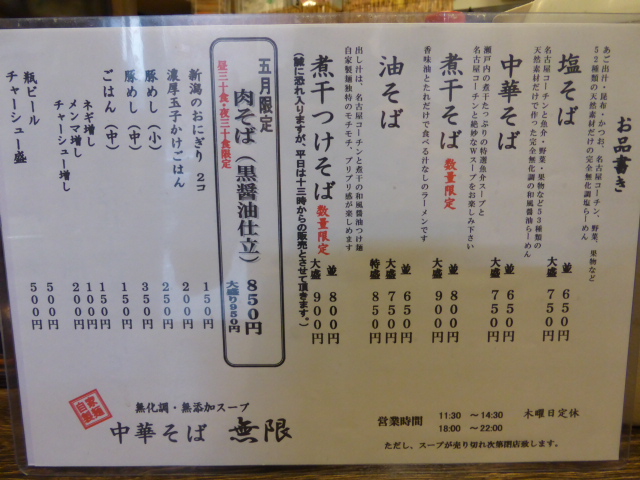 お品書き
あご出汁・昆布・かつお、名古屋コーチン、野菜、果物など
52種類の天然素材だけの完全無化調塩らーめん
塩そば
並 650円
大盛 750円
名古屋コーチンと魚介・野菜・果物など53種類の
天然素材だけで作った完全無化調の和風醤油らーめん
中華そば
並 650円
大盛 750円
瀬戸内の煮干たっぷりの特選魚介スープと
名古屋コーチンと絶妙なWスープをお楽しみ下さい
煮干そば 数量限定
並 800円
大盛 900円
香味油とたれだけで食べる汁なしのラーメンです
油そば
並 650円
大盛 750円
特盛 850円
出し汁は、名古屋コーチンと煮干の和風醤油つけ麺
自家製麺独特のモチモチ、プリプリ感が楽しめます
煮干つけそば 数量限定
並 800円
大盛 900円
(誠に恐れ入りますが、平日は十三時からの販売とさせて頂きます。)
五月限定
肉そば(黒醤油仕立) 850円
大盛り950円
昼三十食・夜三十食限定
新潟のおにぎり 2コ 150円
濃厚玉子かけごはん 200円
豚めし(小) 250円
豚めし(中) 350円
ごはん(中) 150円
ネギ増し 100円
メンマ増し 100円
チャーシュー増し 200円
瓶ビール 500円
チャーシュー盛 500円
自家製麺
無化調・無添加スープ
中華そば 無限
営業時間 11:30 ~14:30 木曜日定休
18:00 ~22:00
ただし、スープが売り切れ次第閉店致します。